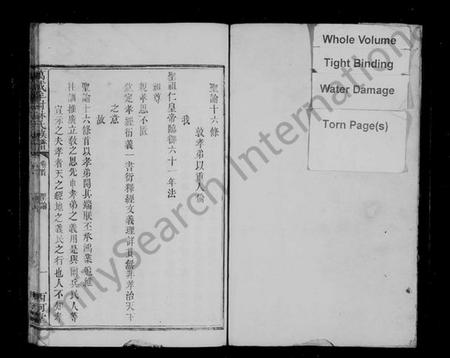 聖諭十六條
敦孝弟以重人倫
我
聖祖仁皇帝臨御六十一年法
祖尊
親孝思不匱
欽定孝經衍義一書衍釋經文義理詳貫無非孝治天下
之意
故
聖諭十六條首以孝弟開其端朕丕承鴻業追維
往訓推廣立教之思先申孝弟之義用是與爾兵民人等
宣示之夫孝者天之經地之義民之行也人不知孝
卷首
聖諭
一
Whole Volume
Tight Binding
Water Damage
Torn Page(s)
FamilySearch International